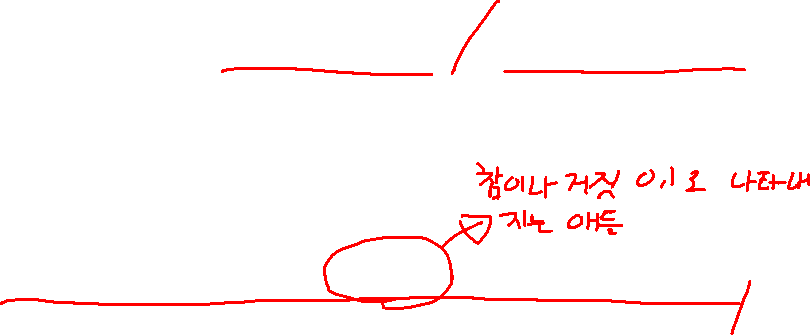 참이나 거짓 0,1로 나타내
지는 애들